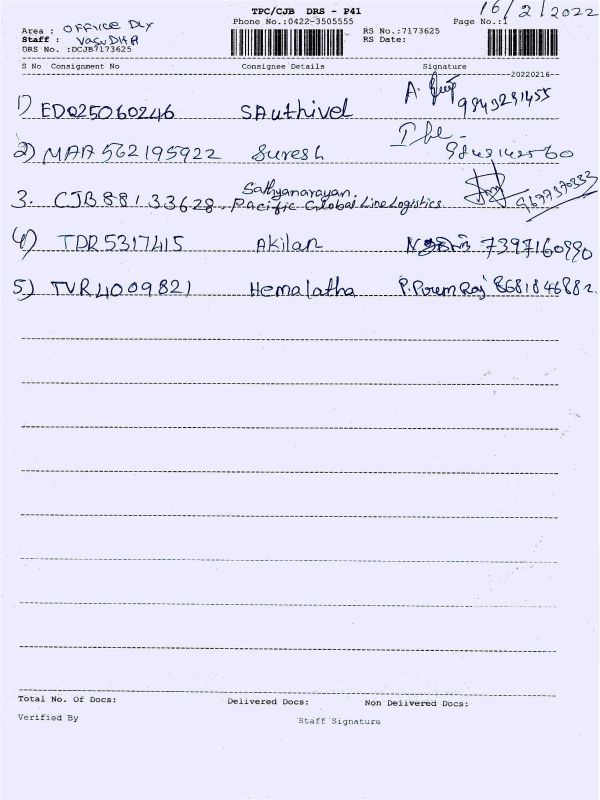 TPC/CJB DRS - P41 16/2/2022
Phone No.:0422-3505555 Page No.:1
Area : OFFICE DLY RS No.:7173625
Staff : VASUDHA RS Date:
DRS No. :DCJB7173625
S No Consignment No Consignee Details Signature
20220216
1) EDQ25060246 SAuthivel A. 9843291455
2) MAA 562195922 Suresh
3. CJB 88133628 Sathyanarayan. 9677370333
Pacific Global Line Logistics
4) TDR 5317415 Akilan 7397160990
5) TVR4009821 Hemalatha P. Prem Raj 8681846882
Total No. Of Docs: Delivered Docs: Non Delivered Docs:
Verified By Staff Signature